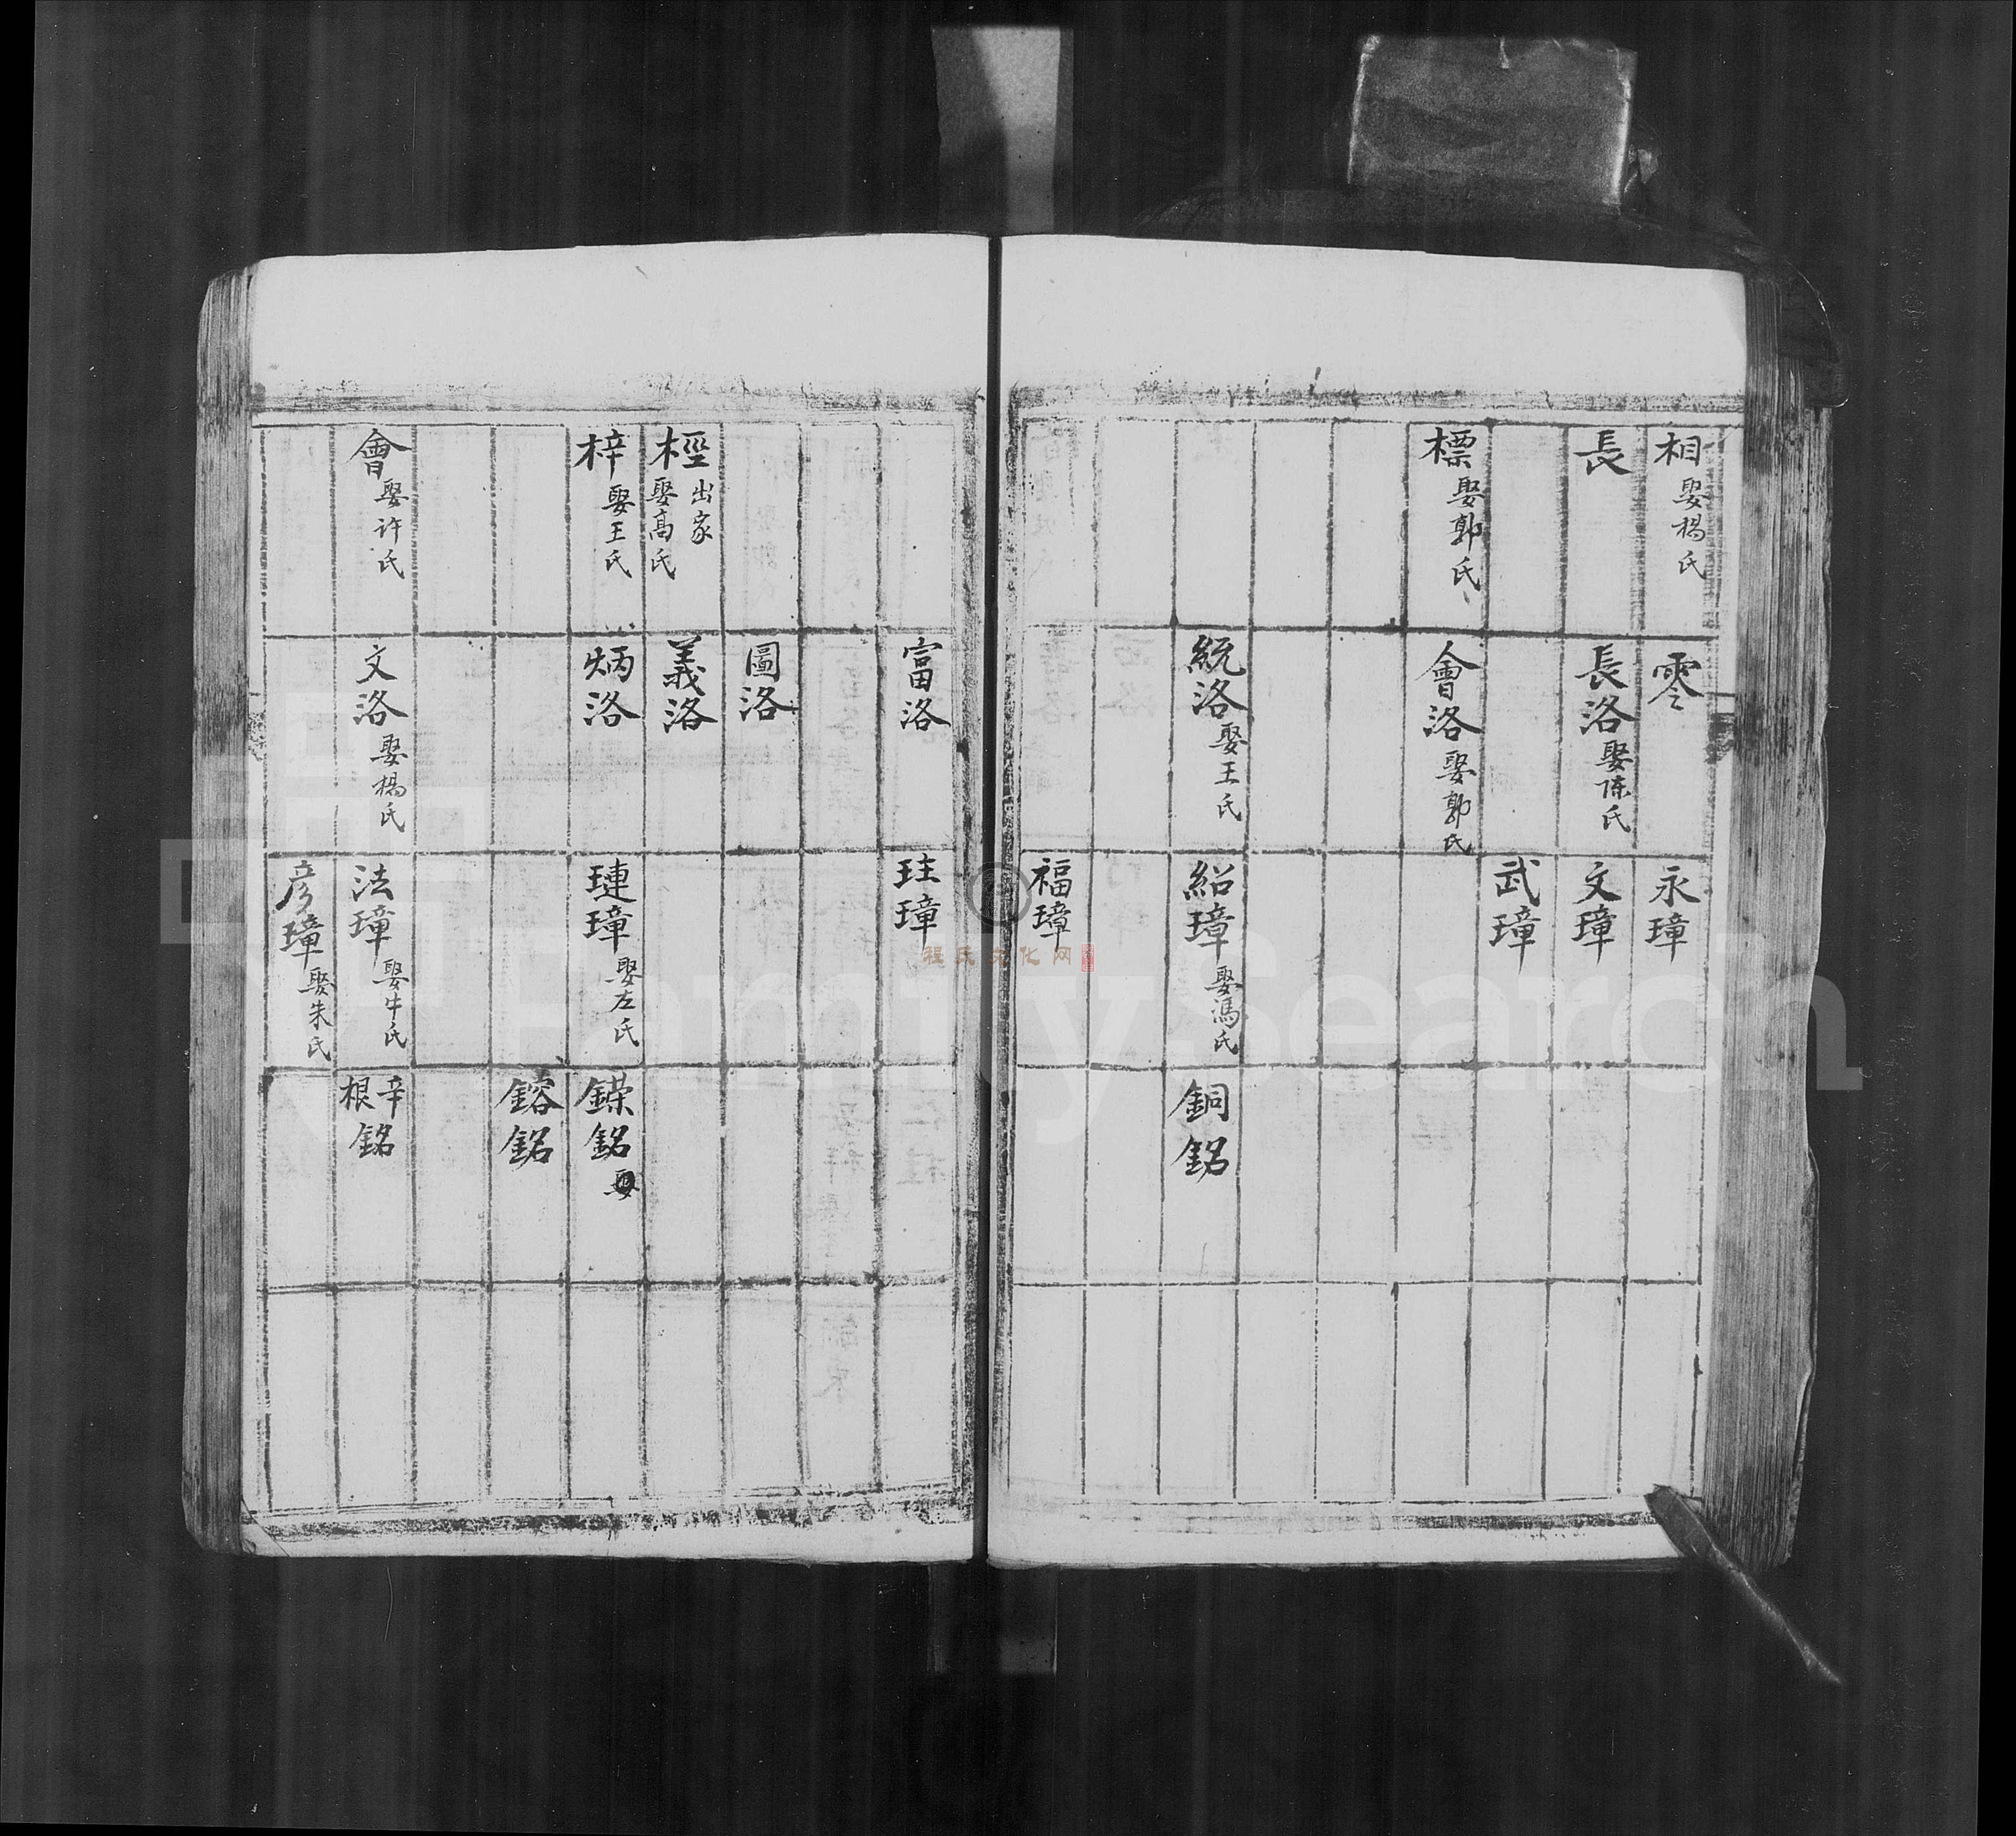 相 娶楊氏
長
標 娶郭氏
零
長洛 娶陈氏
會洛 娶郭氏
統洛 娶王氏
永璋
文璋
武璋
紹璋 娶馮氏
福璋
銅銘
桱 出家 娶髙氏
梓 娶王氏
會 娶许氏
富洛
圖洛
義洛
炳洛
文洛 娶楊氏
玨璋
璉璋 娶左氏
法璋 娶牛氏
彦璋 娶朱氏
鑅銘
鎔銘
辛根銘
程氏文化网
FamilySearch
©